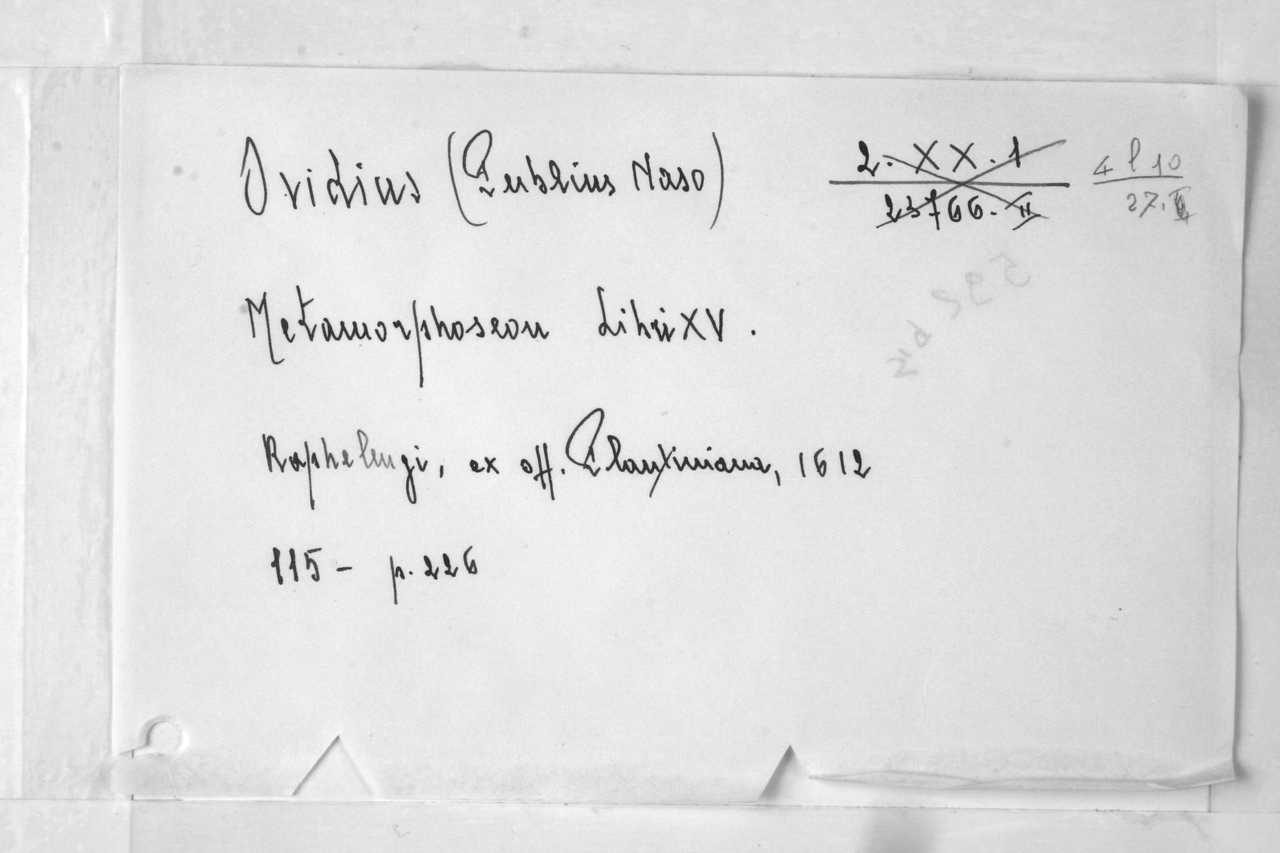 Ovidius (Publius Naso)
2. XX. 1
23766. II
4 l 10
27.
Metamorphoseon Libri XV.
Raphelengi, ex off. Plantiniana, 1612
115 - p. 226